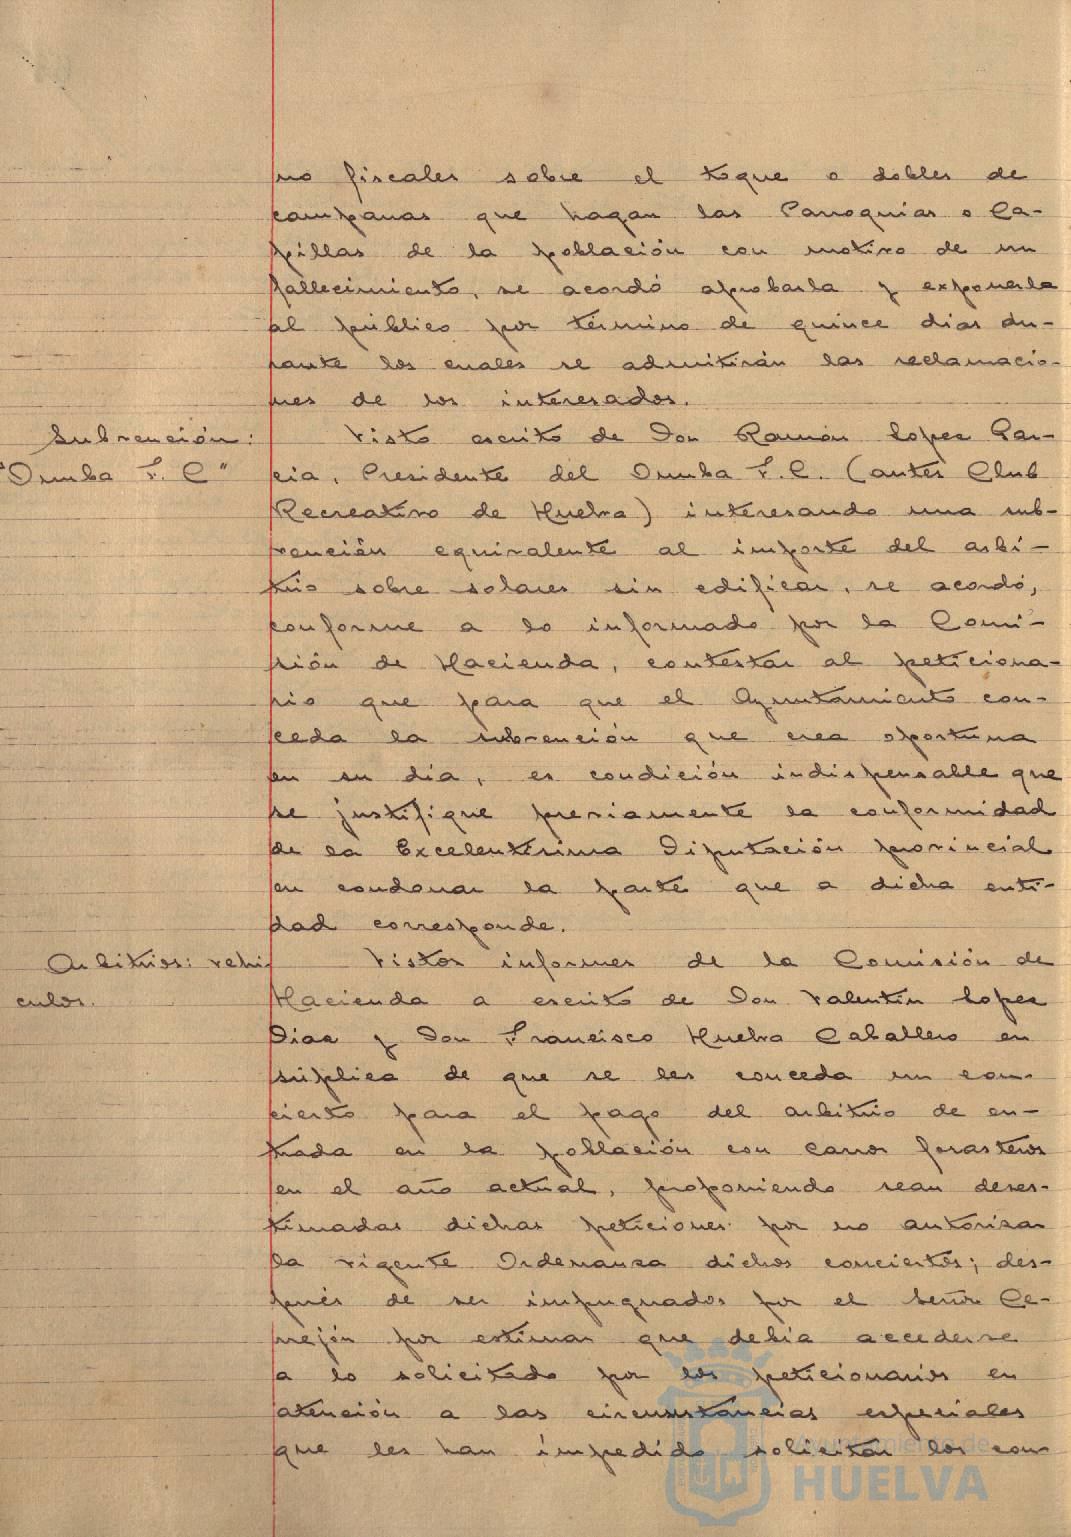 no fiscales sobre el toque o dobles de
campanas que hagan las Parroquias o Ca-
pillas de la población con motivo de un
fallecimiento, se acordó aprobarla y exponerla
al público por término de quince dias du-
rante los cuales se admitirán las reclamacio-
nes de los interesados.
Subvención:
"Onuba F. C"
Visto escrito de Don Ramón Lopez Gar-
cia, Presidente del Onuba F.C. (antes Club
Recreativo de Huelva) interesando una sub-
vención equivalente al importe del arbi-
trio sobre solares sin edificar, se acordó,
conforme a lo informado por la Comi-
sión de Hacienda, contestar al peticiona-
rio que para que el Ayuntamiento con-
ceda la subvención que crea oportuna
en su dia, es condición indispensable que
se justifique previamente la conformidad
de la Excelentisima Diputación provincial
en condonar la parte que a dicha enti-
dad corresponde.
Arbitrios: vehi
culos.
Vistos informes de la Comisión de
Hacienda a escrito de Don Valentin Lopez
Diaz y Don Francisco Huelva Caballero en
súplica de que se les conceda un con-
cierto para el pago del arbitrio de en-
trada en la población con carros forasteros
en el año actual, proponiendo sean deses-
timadas dichas peticiones por no autorizar
la vigente Ordenanza dichos conciertos; des-
pués de ser impugnados por el Señor Ce-
rrejón por estimar que debia accederse
a lo solicitado por los peticionarios en
atención a las circunstancias especiales
que les han impedido solicitar los con-
Ayuntamiento de
HUELVA